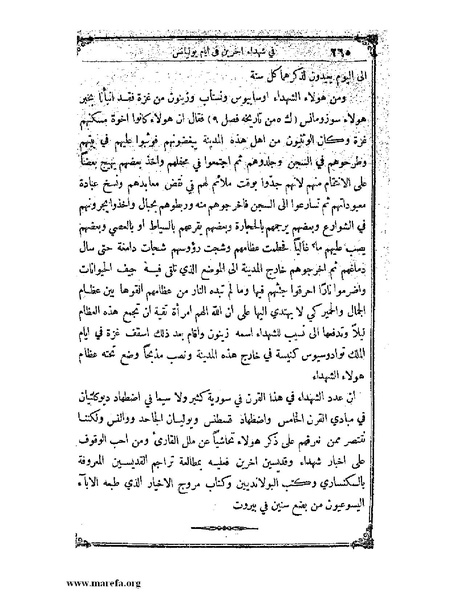 ٢٦٥
في شهداء اخرين في ايام يوليانس
الى اليوم يعيدون لذكرهما كل سنة
ومن هولاء الشهداء اوسابيوس ونستاب وزينون من غزة فقد انبأنا بخبر
هولاء سوزومانس (ك ٥ من تاريخه فصل ٩) فقال ان هولاء كانوا اخوة مسكنهم
غزة وكان الوثنيون من اهل هذه المدينة يبغضونهم فوثبوا عليهم في بيتهم
وطرحوهم في السجن وجلدوهم ثم اجتمعوا في محفلهم واخذ بعضهم يهيج بعضاً
على الانتقام منهم لانهم جدّوا بوقت ملائم لهم في نقض معابدهم ونسخ عبادة
معبوداتهم ثم تسارعوا الى السجن فاخرجوهم منه وربطوهم بحبال واخذوا يجرونهم
في الشوارع وبعضهم يرجمهم بالحجارة وبعضهم يقرعهم بالسياط او بالعصي وبعضهم
يصب عليهم ماءً غالياً فحطمت عظامهم وشجت رؤوسهم شجات دامغة حتى سال
دماغهم ثم اخرجوهم خارج المدينة الى الموضع الذي تلقى فيه جيف الحيوانات
واضرموا ناراً احرقوا جثثهم فيها وما لم تبده النار من عظامهم القوها بين عظام
الجمال والحمير كي لا يهتدى اليها على ان الله الهم امرأة تقية ان تجمع هذه العظام
ليلاً وتدفعها الى نسيب للشهداء اسمه زينون واقام بعد ذلك اسقف غزة في ايام
الملك توادوسيوس كنيسة في خارج هذه المدينة ونصب مذبحاً وضع تحته عظام
هولاء الشهداء
ان عدد الشهداء في هذا القرن في سورية كثير ولا سيما في اضطهاد ديوكلتيان
في مبادي القرن الخامس واضطهاد قسطنس ويوليان الجاحد ووالنس ولكننا
نقتصر ممن نعرفهم على ذكر هولاء تحاشياً عن ملل القارئ ومن احب الوقوف
على اخبار شهداء وقديسين اخرين فعليه بمطالعة تراجم القديسين المعروفة
بالسنكساري وكتب البولانديين وكتاب مروج الاخيار الذي طبعه الاباء
اليسوعيون من بضع سنين في بيروت
www.marefa.org